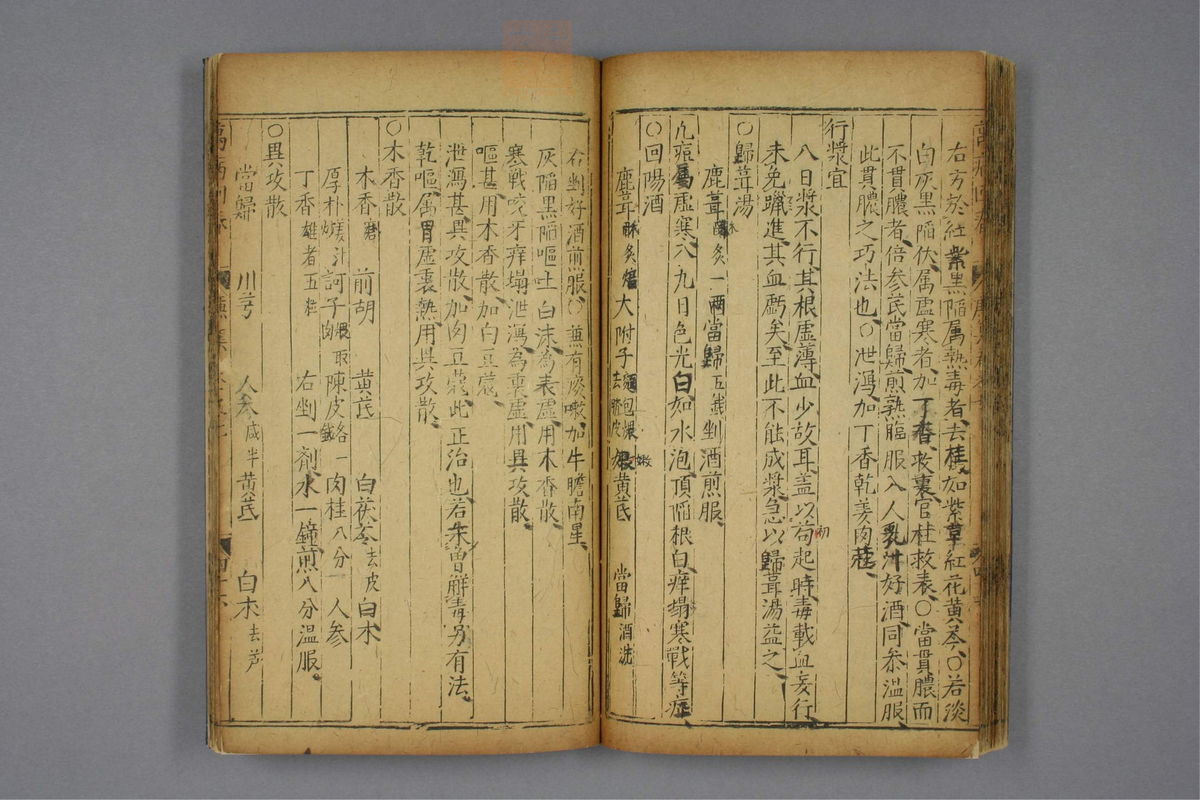 右方於紅紫黑陷属熱毒者去桂加紫草紅花黄芩○若淡
白灰黑陷伏属虚寒者加丁香救裏官桂救表○當貫膿而
不貫膿者倍参芪當歸煎熟臨服入人乳汁好酒同叅温服
此貫膿之巧法也○泄瀉加丁香乾姜肉桂
行漿宜
八日漿不行其根虚薄血少故耳盖以初起時毒載血妄行
未免躐進其血虧矣至此不能成漿急以歸茸湯益之
○歸茸湯
鹿茸酥炙一兩當歸五錢剉酒煎服
凡痘屬虚寒八九日色光白如水泡頂陷根白痒塌寒戰等症
○回陽酒
鹿茸酥炙 大附子去臍皮麺包煨 嫩黄芪 當歸酒洗
右剉好酒煎服○無有痰嗽加牛膽南星
灰陷黑陷嘔吐白沫為表虚用木香散
寒戰咬牙痒塌泄瀉為裏虚用異攻散
嘔甚用木香散加白豆蔻
泄瀉甚異攻散加肉豆蔻此正治也若未曾解毒另有法
乾嘔属胃虚裏熱用異攻散
○木香散
木香磨 前胡 黄芪 白茯苓去皮 白术
厚朴姜汁炒 訶子煨取肉 陳皮各一錢 肉桂八分 人参
丁香雄者五粒 右剉一剤水一鐘煎八分温服
○異攻散
當歸 川芎 人参減半 黄芪 白术去芦